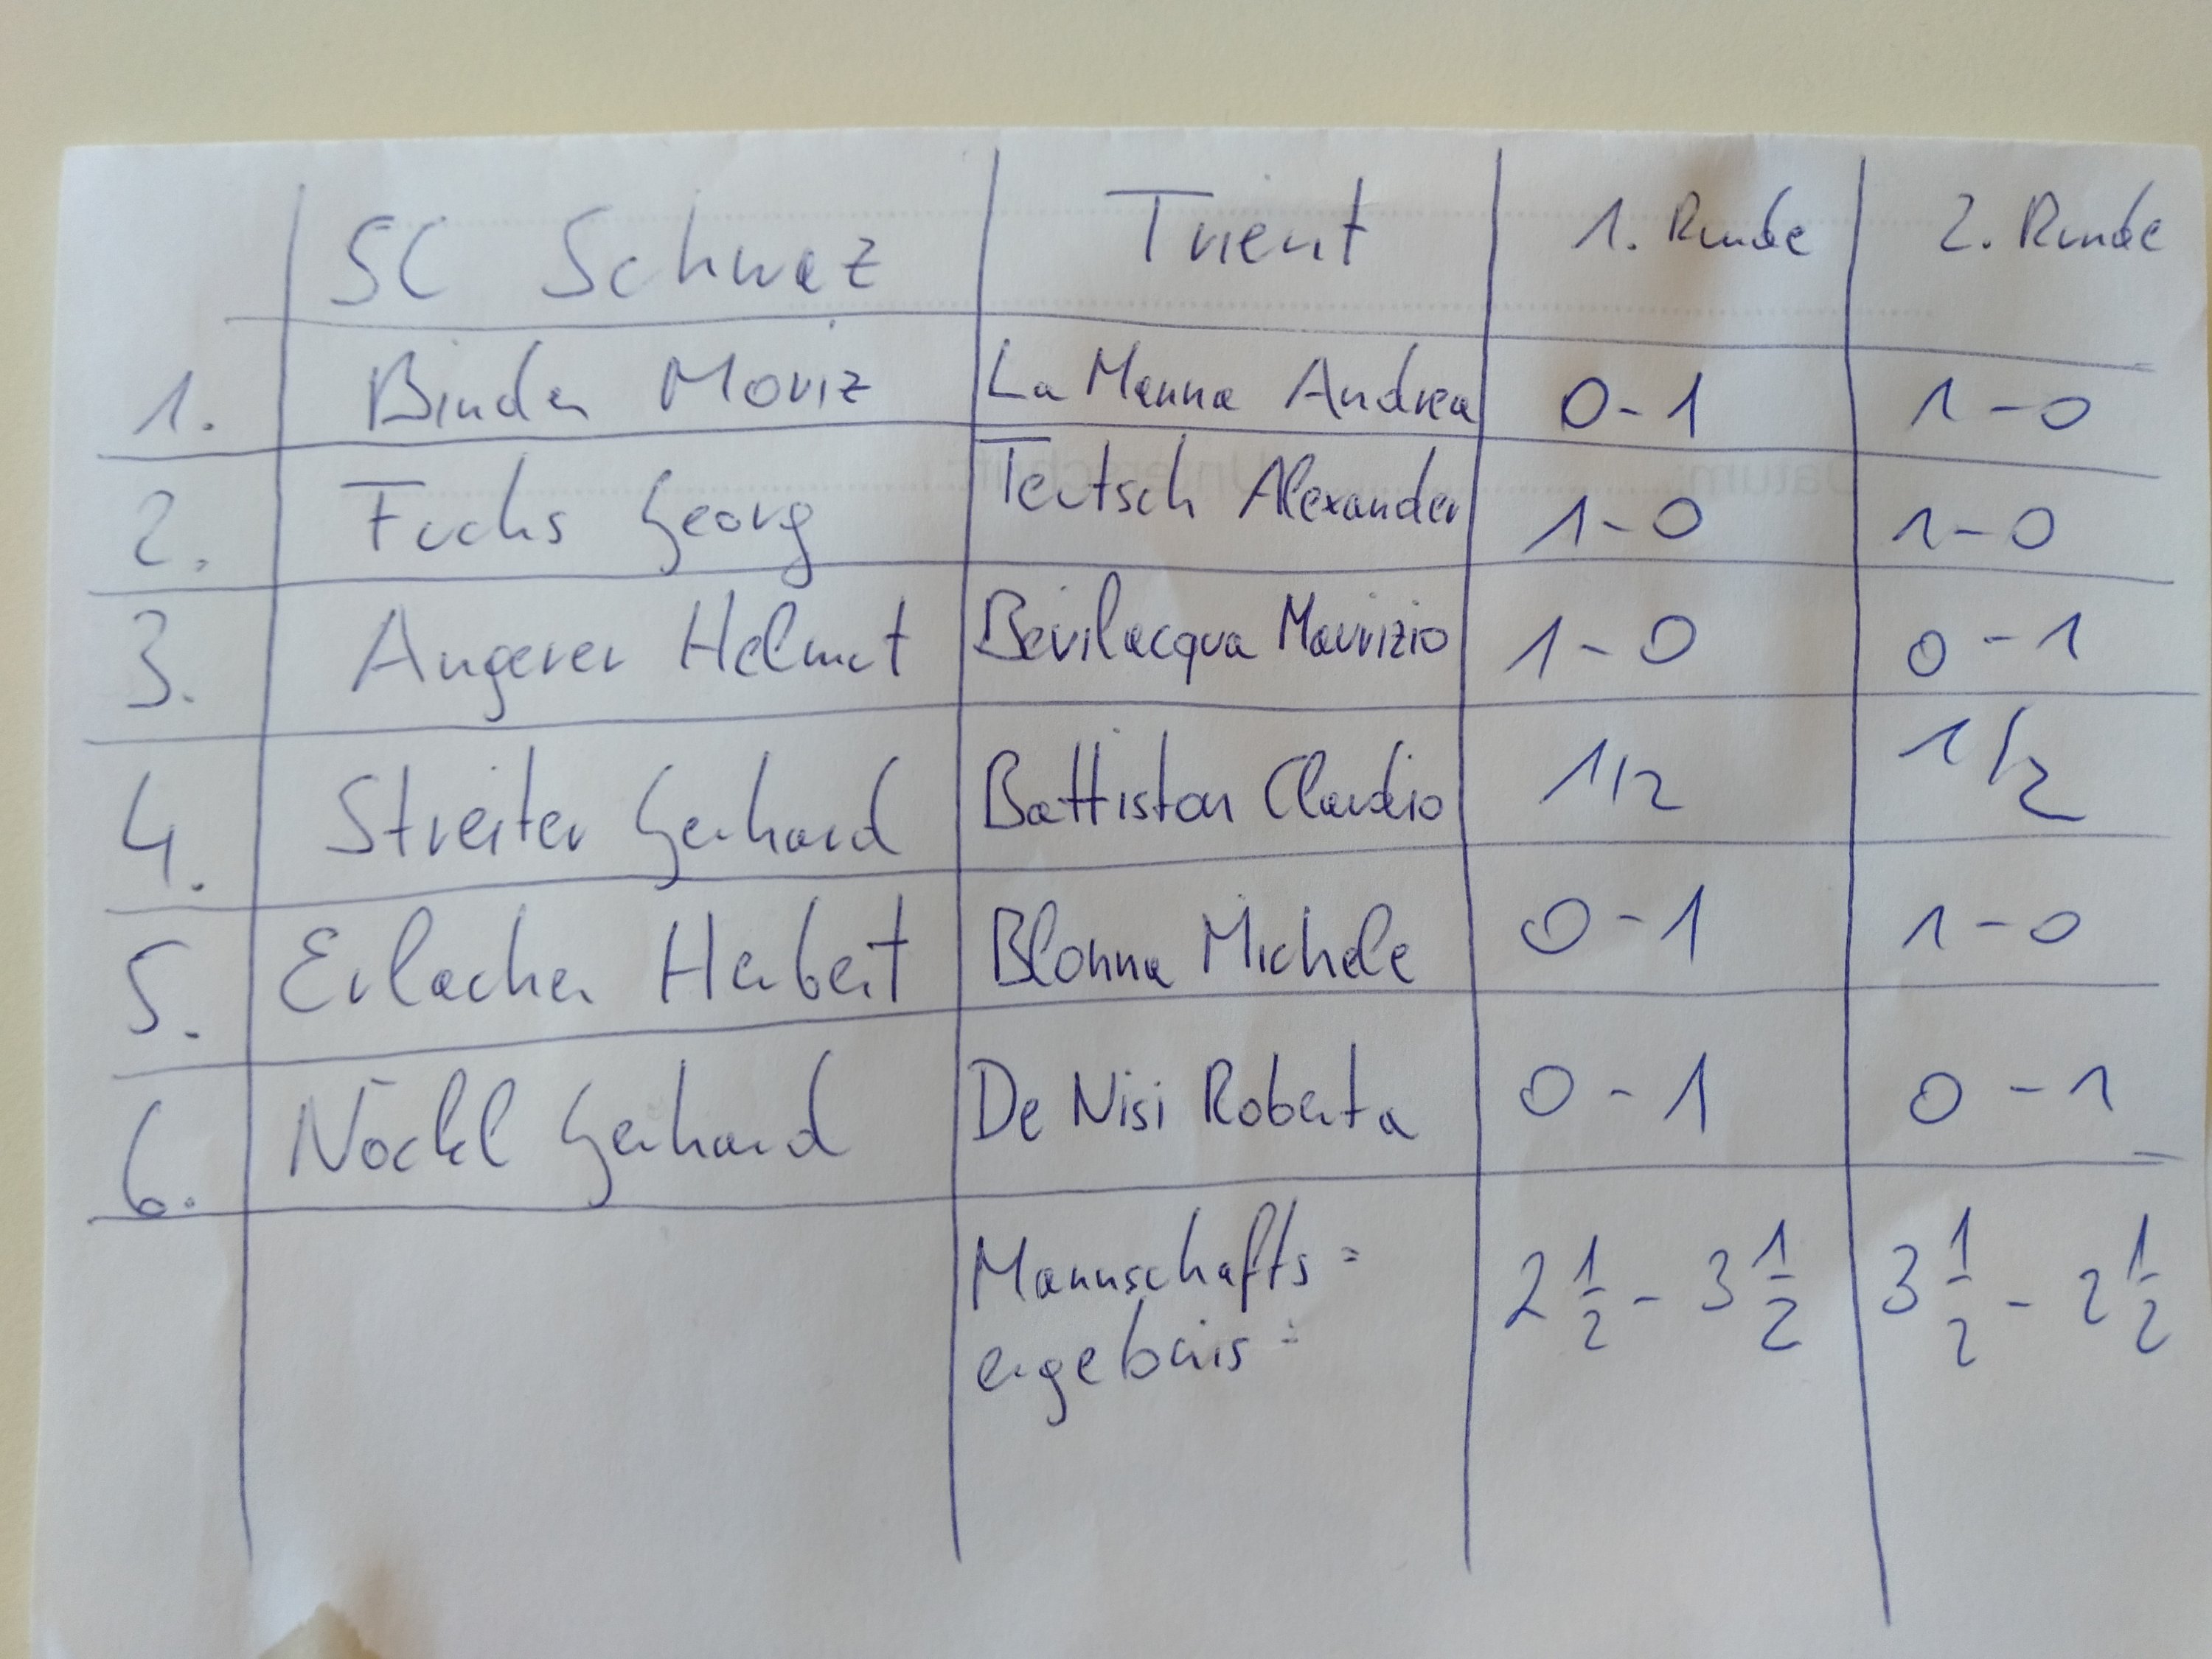 SC Schwaz Trient 1. Runde 2. Runde
1. Binder Moriz La Manna Andrea 0-1 1-0
2. Fuchs Georg Teutsch Alexander 1-0 1-0
3. Angerer Helmut Bevilacqua Maurizio 1-0 0-1
4. Streiter Gerhard Battiston Claudio 1/2 1/2
5. Erlacher Herbert Blonna Michele 0-1 1-0
6. Nöckl Gerhard De Nisi Roberta 0-1 0-1
Mannschafts= 2 1/2 - 3 1/2 3 1/2 - 2 1/2
ergebnis: